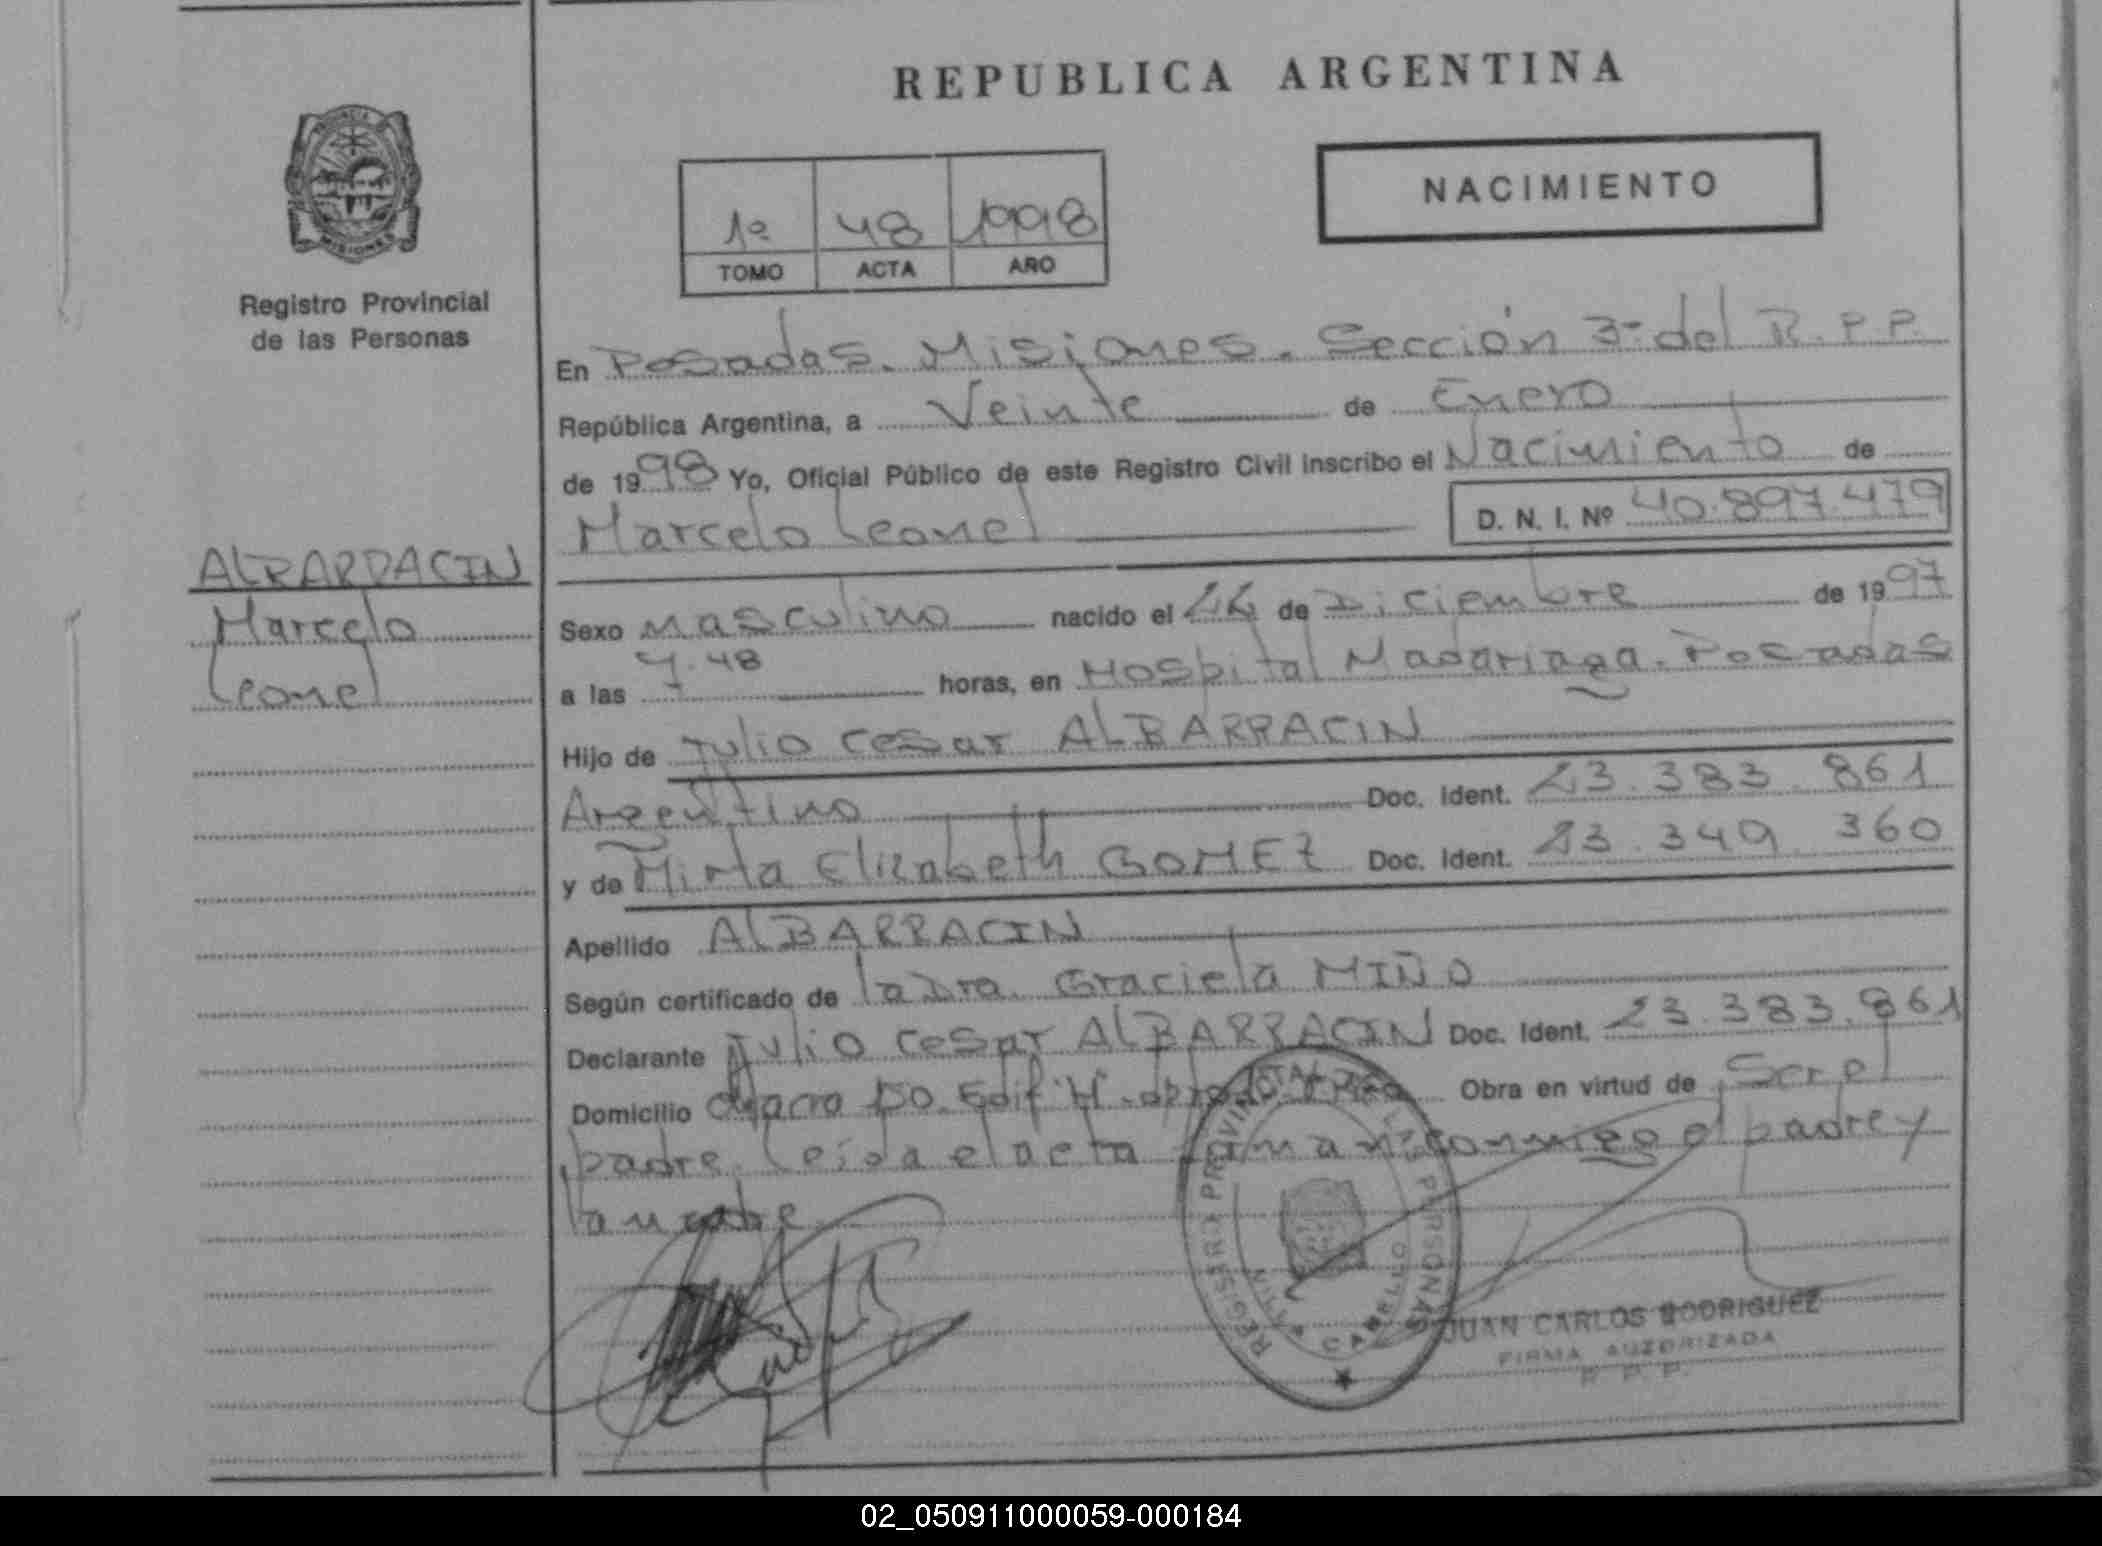 REPUBLICA ARGENTINA
PROVINCIA DE MISIONES
Registro Provincial
de las Personas
1º 48 1998
TOMO ACTA AÑO
NACIMIENTO
En Posadas. Misiones. Sección 3º del R.P.P.
República Argentina, a Veinte de Enero
de 1998 Yo, Oficial Público de este Registro Civil inscribo el Nacimiento de
Marcelo Leonel D. N. I. Nº 40.897.479
ALBARRACIN
Marcelo
Leonel
Sexo Masculino nacido el de Diciembre de 1997
a las 7.48 horas, en Hospital Madariaga. Posadas
Hijo de Julio Cesar ALBARRACIN
Argentino Doc. Ident. 23.383.861
y de Mirta Elizabeth GOMEZ Doc. Ident. 23.349.360
Apellido ALBARRACIN
Según certificado de la Dra. Graciela MIÑO
Declarante Julio Cesar ALBARRACIN Doc. Ident. 23.383.861
Domicilio Chacra Edif "H" Obra en virtud de Ser el
padre. Leida el acta firman conmigo el padre y
la madre.
REGISTRO PROVINCIAL DE LAS PERSONAS
JUAN CARLOS RODRIGUEZ
FIRMA AUTORIZADA
R. P. P.
02_050911000059-000184